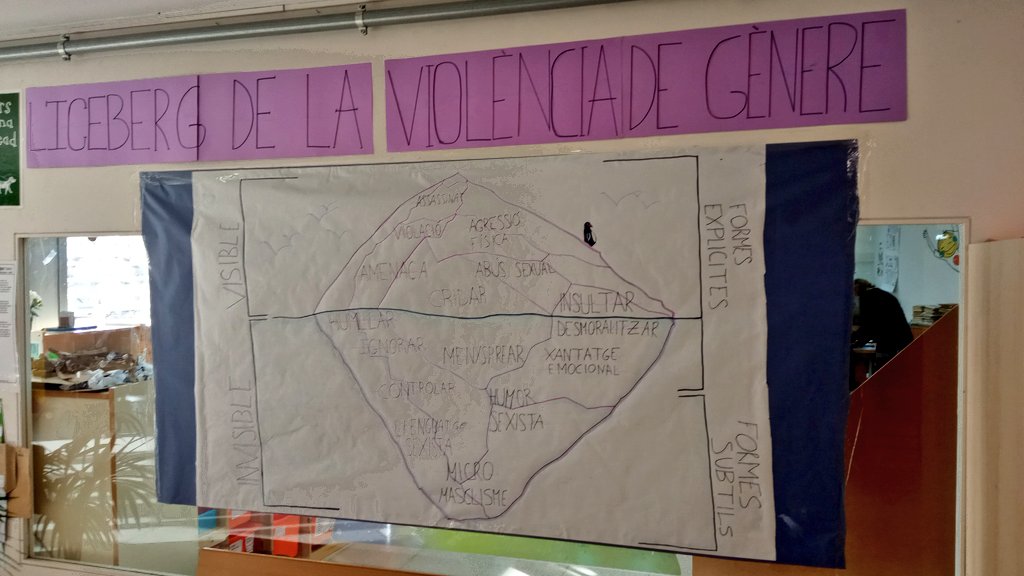 LICEBERG DE LA VIOLÈNCIA DE GÈNERE
VISIBLE
INVISIBLE
ASSASSINAT
VIOLACIÓ
AGRESSIÓ
FÍSICA
AMENAÇA
ABÚS SEXUAL
CRIDAR
INSULTAR
HUMILIAR
DESMORALITZAR
IGNORAR
MENYSPREAR
XANTATGE
EMOCIONAL
CONTROLAR
HUMOR
SEXISTA
LLENGUATGE
SEXISTA
MICRO
MASCLISME
FORMES
EXPLICITES
FORMES
SUBTILS